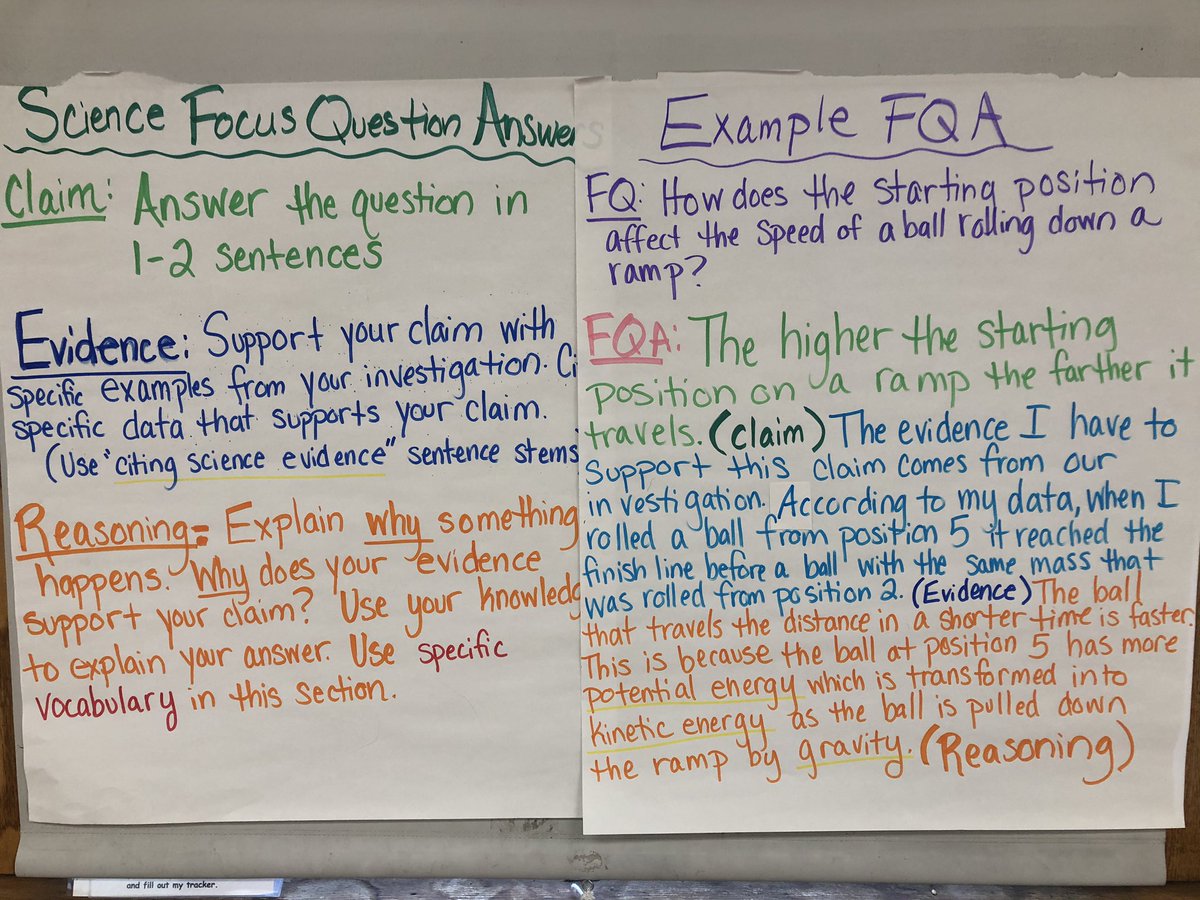 Science Focus Question Answers
Claim: Answer the question in
1-2 sentences
Evidence: Support your claim with
specific examples from your investigation. Ci
specific data that supports your claim.
(Use "citing science evidence" sentence stems
Reasoning: Explain why something
happens. Why does your evidence
support your claim? Use your knowledg
to explain your answer. Use specific
vocabulary in this section.
Example FQA
FQ: How does the starting position
affect the speed of a ball rolling down a
ramp?
FQA: The higher the starting
position on a ramp the farther it
travels. (claim) The evidence I have to
support this claim comes from our
investigation. According to my data, when I
rolled a ball from position 5 it reached the
finish line before a ball with the same mass that
was rolled from position 2. (Evidence) The ball
that travels the distance in a shorter time is faster.
This is because the ball at position 5 has more
potential energy which is transformed into
kinetic energy as the ball is pulled down
the ramp by gravity. (Reasoning)
and fill out my tracker.